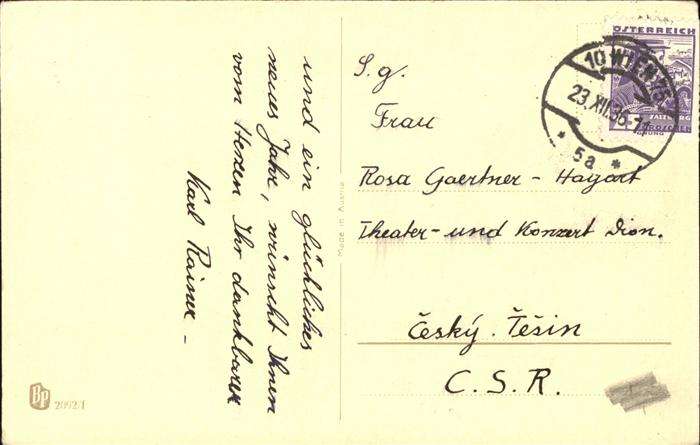 und ein glückliches
neues Jahr, wünscht Ihnen
vom Herzen Ihr dankbarer
Karl Rainer -
Made in Austria
Bp
2092/1
ÖSTERREICH
SALZBURG
10 WIEN
23.XII.36-
* 5a *
S.g.
Frau
Rosa Gaertner - Hagart
Theater- und Konzert Dion.
Český. Těšin
C.S.R.